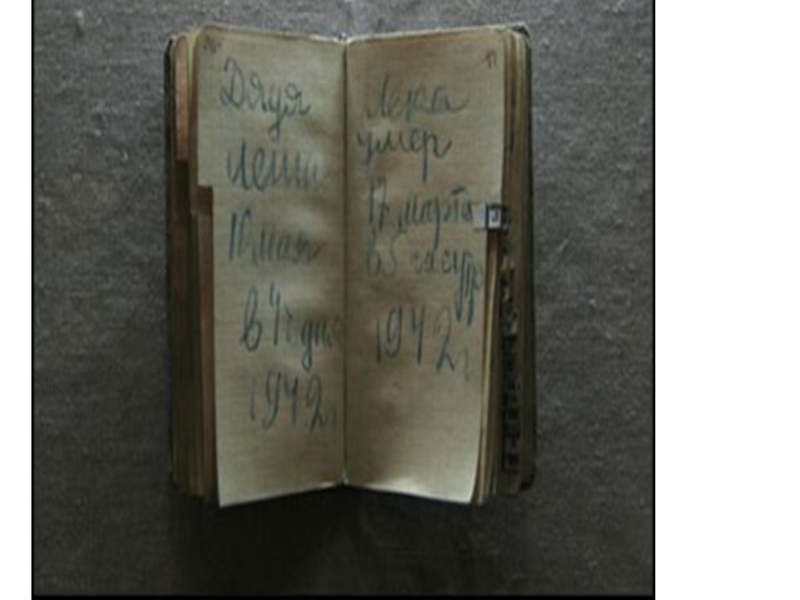 Дядя
Леша
10 мая
в 4ч дня
1942г
Лека
умер
17 марта
в 5 часутр
1942г